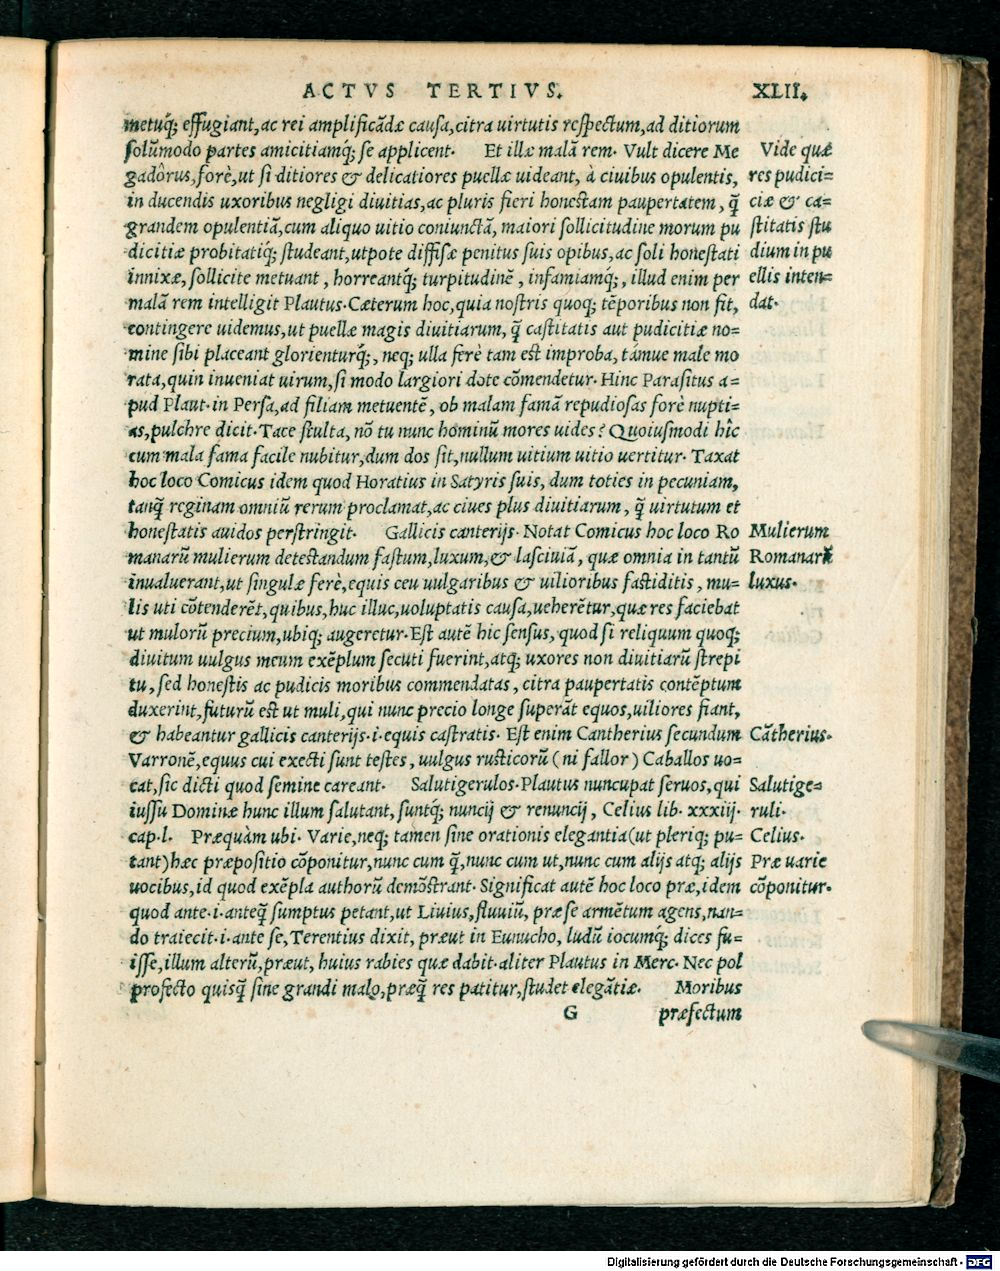 ACTVS TERTIVS. XLII.
metuq́; effugiant, ac rei amplificãdæ causa, citra uirtutis respectum, ad ditiorum
solũmodo partes amicitiamq́; se applicent. Et illæ malã rem. Vult dicere Me
gadôrus, forè, ut si ditiores & delicatiores puellæ uideant, à ciuibus opulentis,
in ducendis uxoribus negligi diuitias, ac pluris fieri honestam paupertatem, q̃
grandem opulentiã, cum aliquo uitio coniunctã, maiori sollicitudine morum pu
dicitiæ probitatiq́; studeant, utpote diffisæ penitus suis opibus, ac soli honestati
innixæ, sollicite metuant, horreantq́; turpitudinẽ, infamiamq́;, illud enim per
malã rem intelligit Plautus. Cæterum hoc, quia nostris quoq; tẽporibus non fit,
contingere uidemus, ut puellæ magis diuitiarum, q̃ castitatis aut pudicitiæ no-
mine sibi placeant glorienturq́;, neq; ulla ferè tam est improba, támue male mo
rata, quin inueniat uirum, si modo largiori dote cõmendetur. Hinc Parasitus a-
pud Plaut. in Persa, ad filiam metuentẽ, ob malam famã repudiosas forè nupti-
as, pulchre dicit. Tace stulta, nõ tu nunc hominũ mores uides? Quoiusmodi hîc
cum mala fama facile nubitur, dum dos sit, nullum uitium uitio uertitur. Taxat
hoc loco Comicus idem quod Horatius in Satyris suis, dum toties in pecuniam,
tanq̃ reginam omniũ rerum proclamat, ac ciues plus diuitiarum, q̃ uirtutum et
honestatis auidos perstringit. Gallicis canterijs. Notat Comicus hoc loco Ro
manarũ mulierum detestandum fastum, luxum, & lasciuiã, quæ omnia in tantũ
inualuerant, ut singulæ ferè, equis ceu uulgaribus & uilioribus fastiditis, mu-
lis uti cõtenderẽt, quibus, huc illuc, uoluptatis causa, ueherẽtur, quæ res faciebat
ut mulorũ precium, ubiq; augeretur. Est autẽ hic sensus, quod si reliquum quoq;
diuitum uulgus meum exẽplum secuti fuerint, atq; uxores non diuitiarũ strepi
tu, sed honestis ac pudicis moribus commendatas, citra paupertatis contẽptum
duxerint, futurũ est ut muli, qui nunc precio longe superãt equos, uiliores fiant,
& habeantur gallicis canterijs. i. equis castratis. Est enim Cantherius secundum
Varronẽ, equus cui execti sunt testes, uulgus rusticorũ (ni fallor) Caballos uo-
cat, sic dicti quod semine careant. Salutigerulos. Plautus nuncupat seruos, qui
iussu Dominæ hunc illum salutant, suntq́; nuncij & renuncij, Celius lib. xxxiij.
cap. l. Præquàm ubi. Varie, neq; tamen sine orationis elegantia (ut pleriq; pu-
tant) hæc præpositio cõponitur, nunc cum q̃, nunc cum ut, nunc cum alijs atq; alijs
uocibus, id quod exẽpla authorũ demõstrant. Significat autẽ hoc loco præ, idem
quod ante. i. anteq̃ sumptus petant, ut Liuius, fluuiũ, præ se armẽtum agens, nan-
do traiecit. i. ante se, Terentius dixit, præut in Eunucho, ludũ iocumq́; dices fu-
isse, illum alterũ, præut, huius rabies quæ dabit. aliter Plautus in Merc. Nec pol
profecto quisq̃ sine grandi malo, præq̃ res patitur, studet elegãtiæ. Moribus
G præfectum
Vide quæ
res pudici-
ciæ & ca-
stitatis stu
dium in pu
ellis inten-
dat.
Mulierum
Romanarũ
luxus.
Cãtherius.
Salutige-
ruli.
Celius.
Præ uarie
cõponitur.
Digitalisierung gefördert durch die Deutsche Forschungsgemeinschaft - DFG